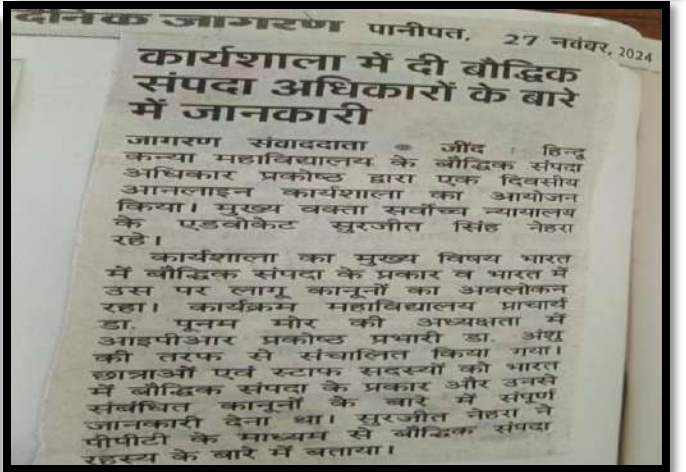 दैनिक जागरण पानीपत, 27 नवंबर, 2024
कार्यशाला में दी बौद्धिक
संपदा अधिकारों के बारे
में जानकारी
जागरण संवाददाता • जींद : हिन्दू
कन्या महाविद्यालय के बौद्धिक संपदा
अधिकार प्रकोष्ठ द्वारा एक दिवसीय
आनलाइन कार्यशाला का आयोजन
किया। मुख्य वक्ता सर्वोच्च न्यायालय
के एडवोकेट सुरजीत सिंह नेहरा
रहे।
कार्यशाला का मुख्य विषय भारत
में बौद्धिक संपदा के प्रकार व भारत में
उस पर लागू कानूनों का अवलोकन
रहा। कार्यक्रम महाविद्यालय प्राचार्य
डा. पूनम मोर की अध्यक्षता में
आइपीआर प्रकोष्ठ प्रभारी डा. अंशु
की तरफ से संचालित किया गया।
छात्राओं एवं स्टाफ सदस्यों को भारत
में बौद्धिक संपदा के प्रकार और उनसे
संबंधित कानूनों के बारे में संपूर्ण
जानकारी देना था। सुरजीत नेहरा ने
पीपीटी के माध्यम से बौद्धिक संपदा
रहस्य के बारे में बताया।